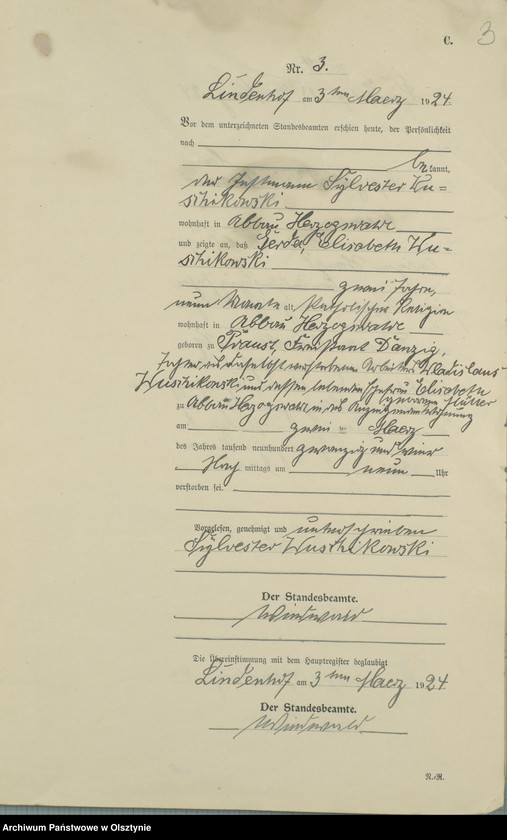 C. 3
Nr. 3.
Lindenhof am 3ten Maerz 1924.
Vor dem unterzeichneten Standesbeamten erschien heute, der Persönlichkeit
nach
be kannt,
der Instmann Sylvester Ku=
schikowski
wohnhaft in Abbau Herzogswalde
und zeigte an, daß Gerda, Elisabeth Ku=
schikowski
zwei Jahre,
neun Monate alt, Katholischer Religion
wohnhaft in Abbau Herzogswalde
geboren zu Praust, Freistaat Danzig,
Tochter des daselbst verstorbenen Arbeiters Wladislaus
Kuschikowski und dessen lebenden Ehefrau Elisabeth
geborenen
zu Abbau Herzogswalde in des Anzeigenden Wohnung
am zwei ten Maerz
des Jahres tausend neunhundert zwanzig und vier
Nach mittags um neun Uhr
verstorben sei.
Vorgelesen, genehmigt und unterschrieben
Sylvester Kuschikowski
Der Standesbeamte.
Die Übereinstimmung mit dem Hauptregister beglaubigt
Lindenhof am 3ten Maerz 1924
Der Standesbeamte.
N./R.
Archiwum Państwowe w Olsztynie